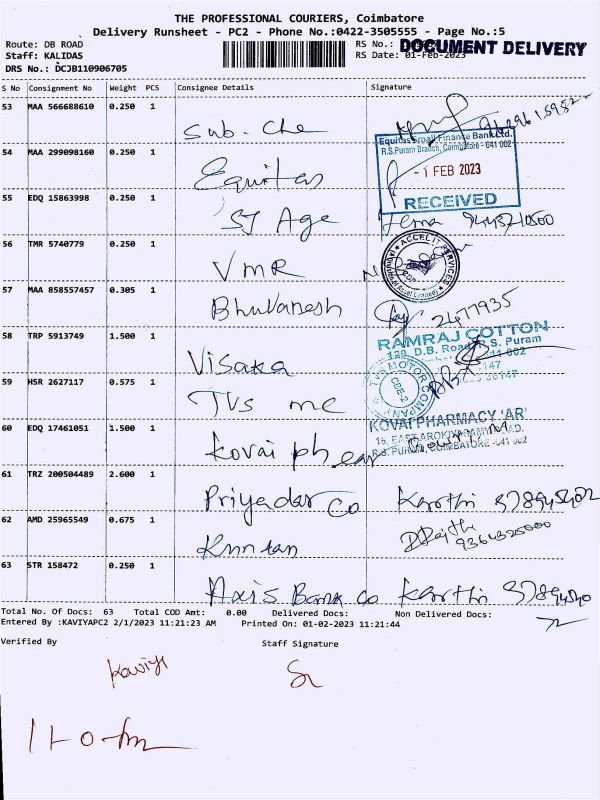 THE PROFESSIONAL COURIERS, Coimbatore
Delivery Runsheet - PC2 - Phone No.:0422-3505555 - Page No.:5
Route: DB ROAD
Staff: KALIDAS
DRS No.: DCJB110906705
RS No.:
DOCUMENT DELIVERY
RS Date: 01-Feb-2023
S No Consignment No Weight PCS Consignee Details Signature
53 MAA 566688610 0.250 1 Sub-Che
54 MAA 299098160 0.250 1 Equitas
Equitas Small Finance Bank Ltd.
R.S.Puram Branch, Coimbatore - 641 002
- 1 FEB 2023
RECEIVED
55 EDQ 15863998 0.250 1 ST Age Hema
56 TMR 5740779 0.250 1 VMR
ACCEL IT SERVICES
57 MAA 858557457 0.305 1 Bhuvanesh
2477935
58 TRP 5913749 1.500 1 Visaka
RAMRAJ COTTON
128, D.B. Road, R.S. Puram
59 HSR 2627117 0.575 1 TVS mc
TVS MOTOR COMPANY
CBE-2
60 EDQ 17461051 1.500 1 Kovai ph
KOVAI PHARMACY 'AR'
R.S. PURAM, COIMBATORE - 641 002
61 TRZ 200504489 2.600 1 Priyadar Co Karthi
62 AMD 25965549 0.675 1
9364325000
63 STR 158472 0.250 1 Axis Bank Co Karthi
Total No. Of Docs: 63 Total COD Amt: 0.00 Delivered Docs: Non Delivered Docs:
Entered By :KAVIYAPC2 2/1/2023 11:21:23 AM Printed On: 01-02-2023 11:21:44
Verified By Staff Signature
Kaviya